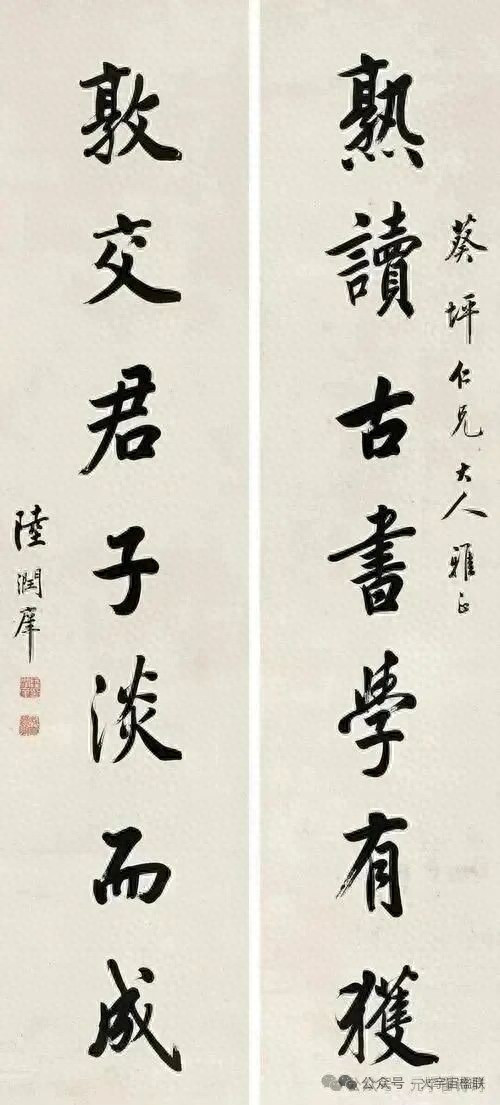 葵坪仁兄大人雅正
熟讀古書學有獲
敦交君子淡而成
陸潤庠
公众号